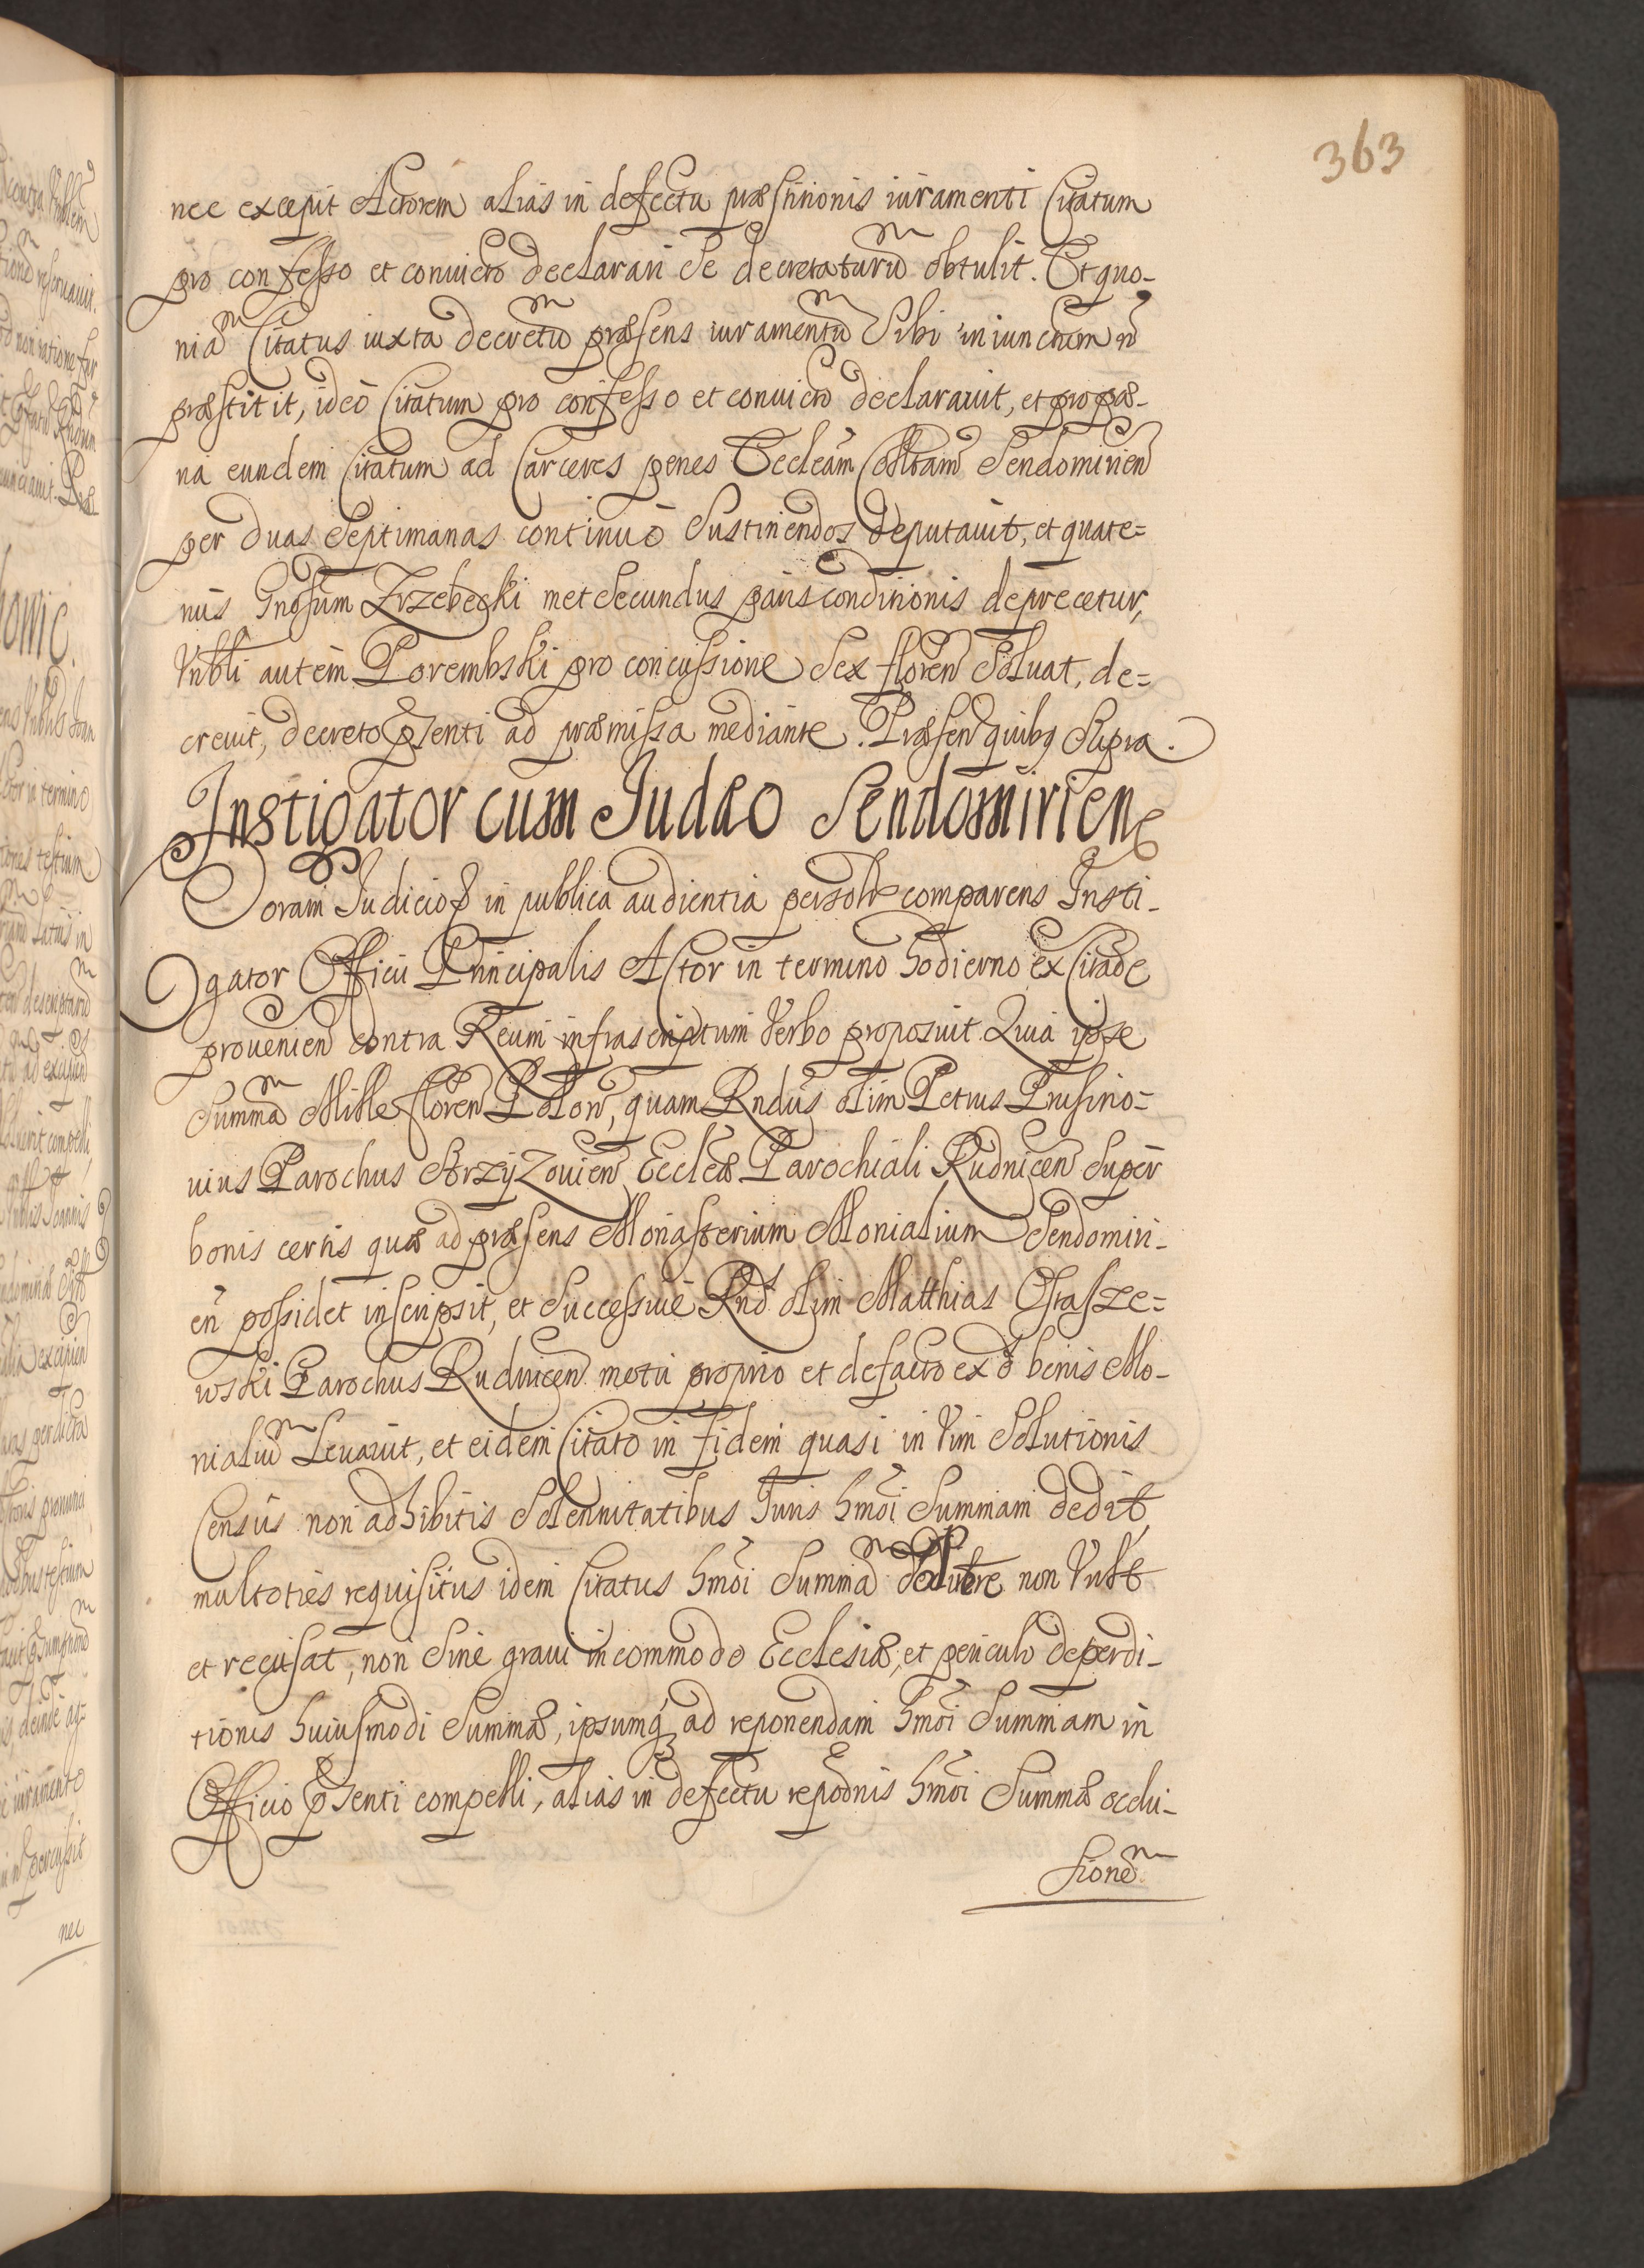 363
nec excepit Actorem alias in defectu præstitionis iuramenti Citatum
pro confesso et conuicto declarari Se decretaturũ obtulit. Et quo-
niã Citatus iuxta decretũ præsens iuramentũ Sibi iniunctum ñ
præstitit, ideò Citatum pro confesso et conuicto declarauit, et pro pæ-
na eundem Citatum ad Carceres penes Eccleãm Collttam Sendomirien
per duas Septimanas continuò Sustinendos deputauit, et quate=
nus Gnosum Zrzebecki met Secundus paris conditionis deprecetur,
Nobli autem Porembski pro concussione Sex floren Soluat, de=
creuit, decreto pnti ad præmissa mediante. Præsen quibq Supra.
Instigator cum Judæo Sendomirien
Coram Judicio in publica audientia personlr comparens Insti-
gator Officii Principalis Actor in termino hodierno ex Citaõe
prouenien contra Reum infrascriptum Verbo proposuit Quia ipse
Summã Mille floren Polon, quam Rndus olim Petrus Prusino=
uius Parochus Strzyzouien Eccleæ Parochiali Rudnicen Super
bonis certis quæ ad præsens Monasterium Monialium Sendomiri-
en possidet inscripsit, et Successiuè Rnds olim Matthias Ostasze=
wski Parochus Rudnicen motu proprio et de facto ex bonis Mo-
nialiũ Leuauit, et eidem Citato in fidem quasi in Vim Solutionis
Census non adhibitis Solennitatibus Juris hmõi Summam dedit
multoties requisitus idem Citatus hmõi Summã non Vult
et recusat, non Sine graui incommodo Ecclesiæ, et periculo deperdi-
tionis huiusmodi Summæ, ipsumq ad reponendam hmõi Summam in
Officio pnti compelli, alias in defectu reponis hmõi Summæ occlu-
sionẽ